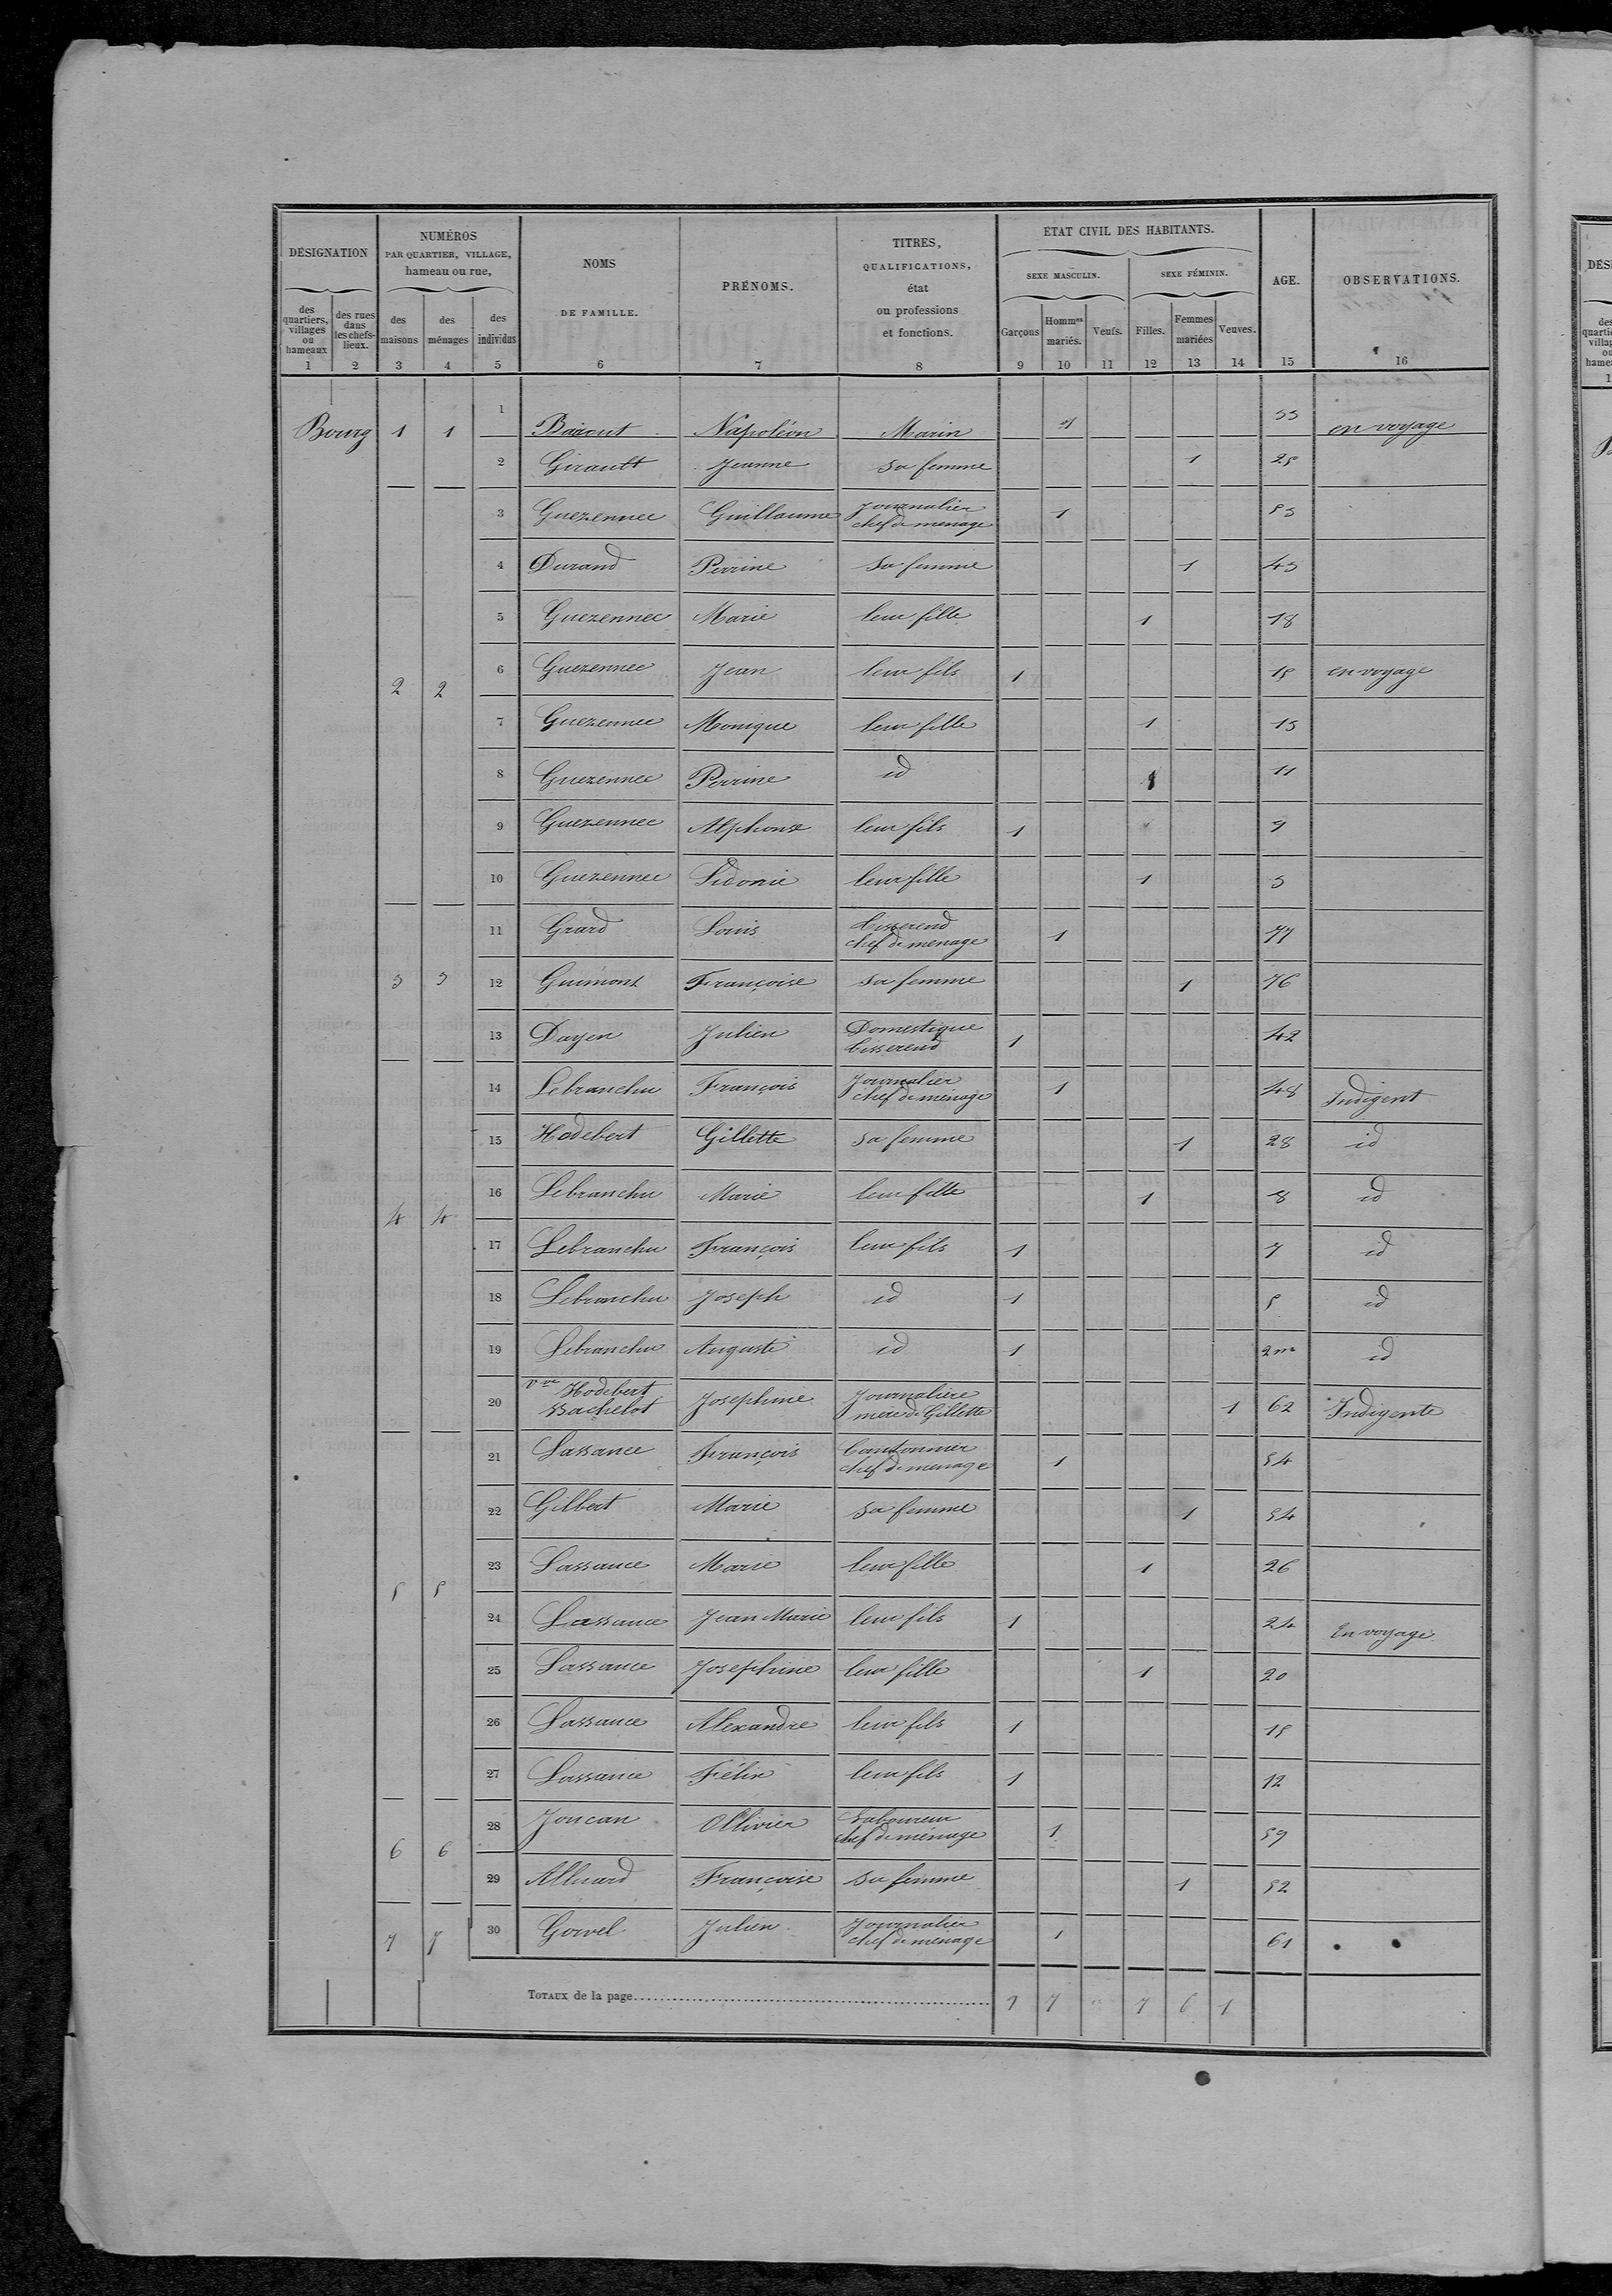 DÉSIGNATION
NUMÉROS
PAR QUARTIER, VILLAGE,
hameau ou rue,
NOMS
DE FAMILLE.
PRÉNOMS.
TITRES,
QUALIFICATIONS,
état
ou professions
et fonctions.
ÉTAT CIVIL DES HABITANTS.
SEXE MASCULIN.
SEXE FÉMININ.
AGE.
OBSERVATIONS.
des quartiers, villages ou hameaux
des rues dans les chefs-lieux.
des maisons
des ménages
des individus
Garçons
Hommes mariés.
Veufs.
Filles.
Femmes mariées
Veuves.
1 2 3 4 5 6 7 8 9 10 11 12 13 14 15 16
Bourg 1 1 1 Napoléon Marin 1 33 en voyage
2 Girault Jeanne sa femme 1 25
3 Guezennec Guillaume Journalier chef de ménage 1 53
4 Durand Perrine sa femme 1 43
5 Guezennec Marie leur fille 1 18
2 2 6 Guezennec Jean leur fils 1 15 en voyage
7 Guezennec Monique leur fille 1 13
8 Guezennec Perrine id 1 11
9 Guezennec Alphonse leur fils 1 9
10 Guezennec Sidonie leur fille 1 3
11 Grard Louis tisserend chef de menage 1 77
3 3 12 Guimont Françoise sa femme 1 76
13 Dayen Julien Domestique tisserend 1 42
14 Lebranchu François Journalier chef de ménage 1 48 Indigent
15 Hodebert Gillette sa femme 1 28 id
4 4 16 Lebranchu Marie leur fille 1 8 id
17 Lebranchu François leur fils 1 7 id
18 Lebranchu Joseph id 1 5 id
19 Lebranchu Auguste id 1 2m id
20 Vve Hodebert Bachelot Josephine Journalière mère de Gillette 1 62 Indigente
21 Lassance François Cantonnier chef de menage 1 54
22 Gilbert Marie sa femme 1 54
23 Lassance Marie leur fille 1 26
5 5 24 Lassance Jean Marie leur fils 1 24 En voyage
25 Lassance Josephine leur fille 1 20
26 Lassance Alexandre leur fils 1 15
27 Lassance Félix leur fils 1 12
6 6 28 Joucan Ollivier Laboureur chef de ménage 1 59
29 Alluard Françoise sa femme 1 52
7 7 30 Gorvel Julien Journalier chef de ménage 1 61
TOTAUX de la page 9 7 " 7 6 1